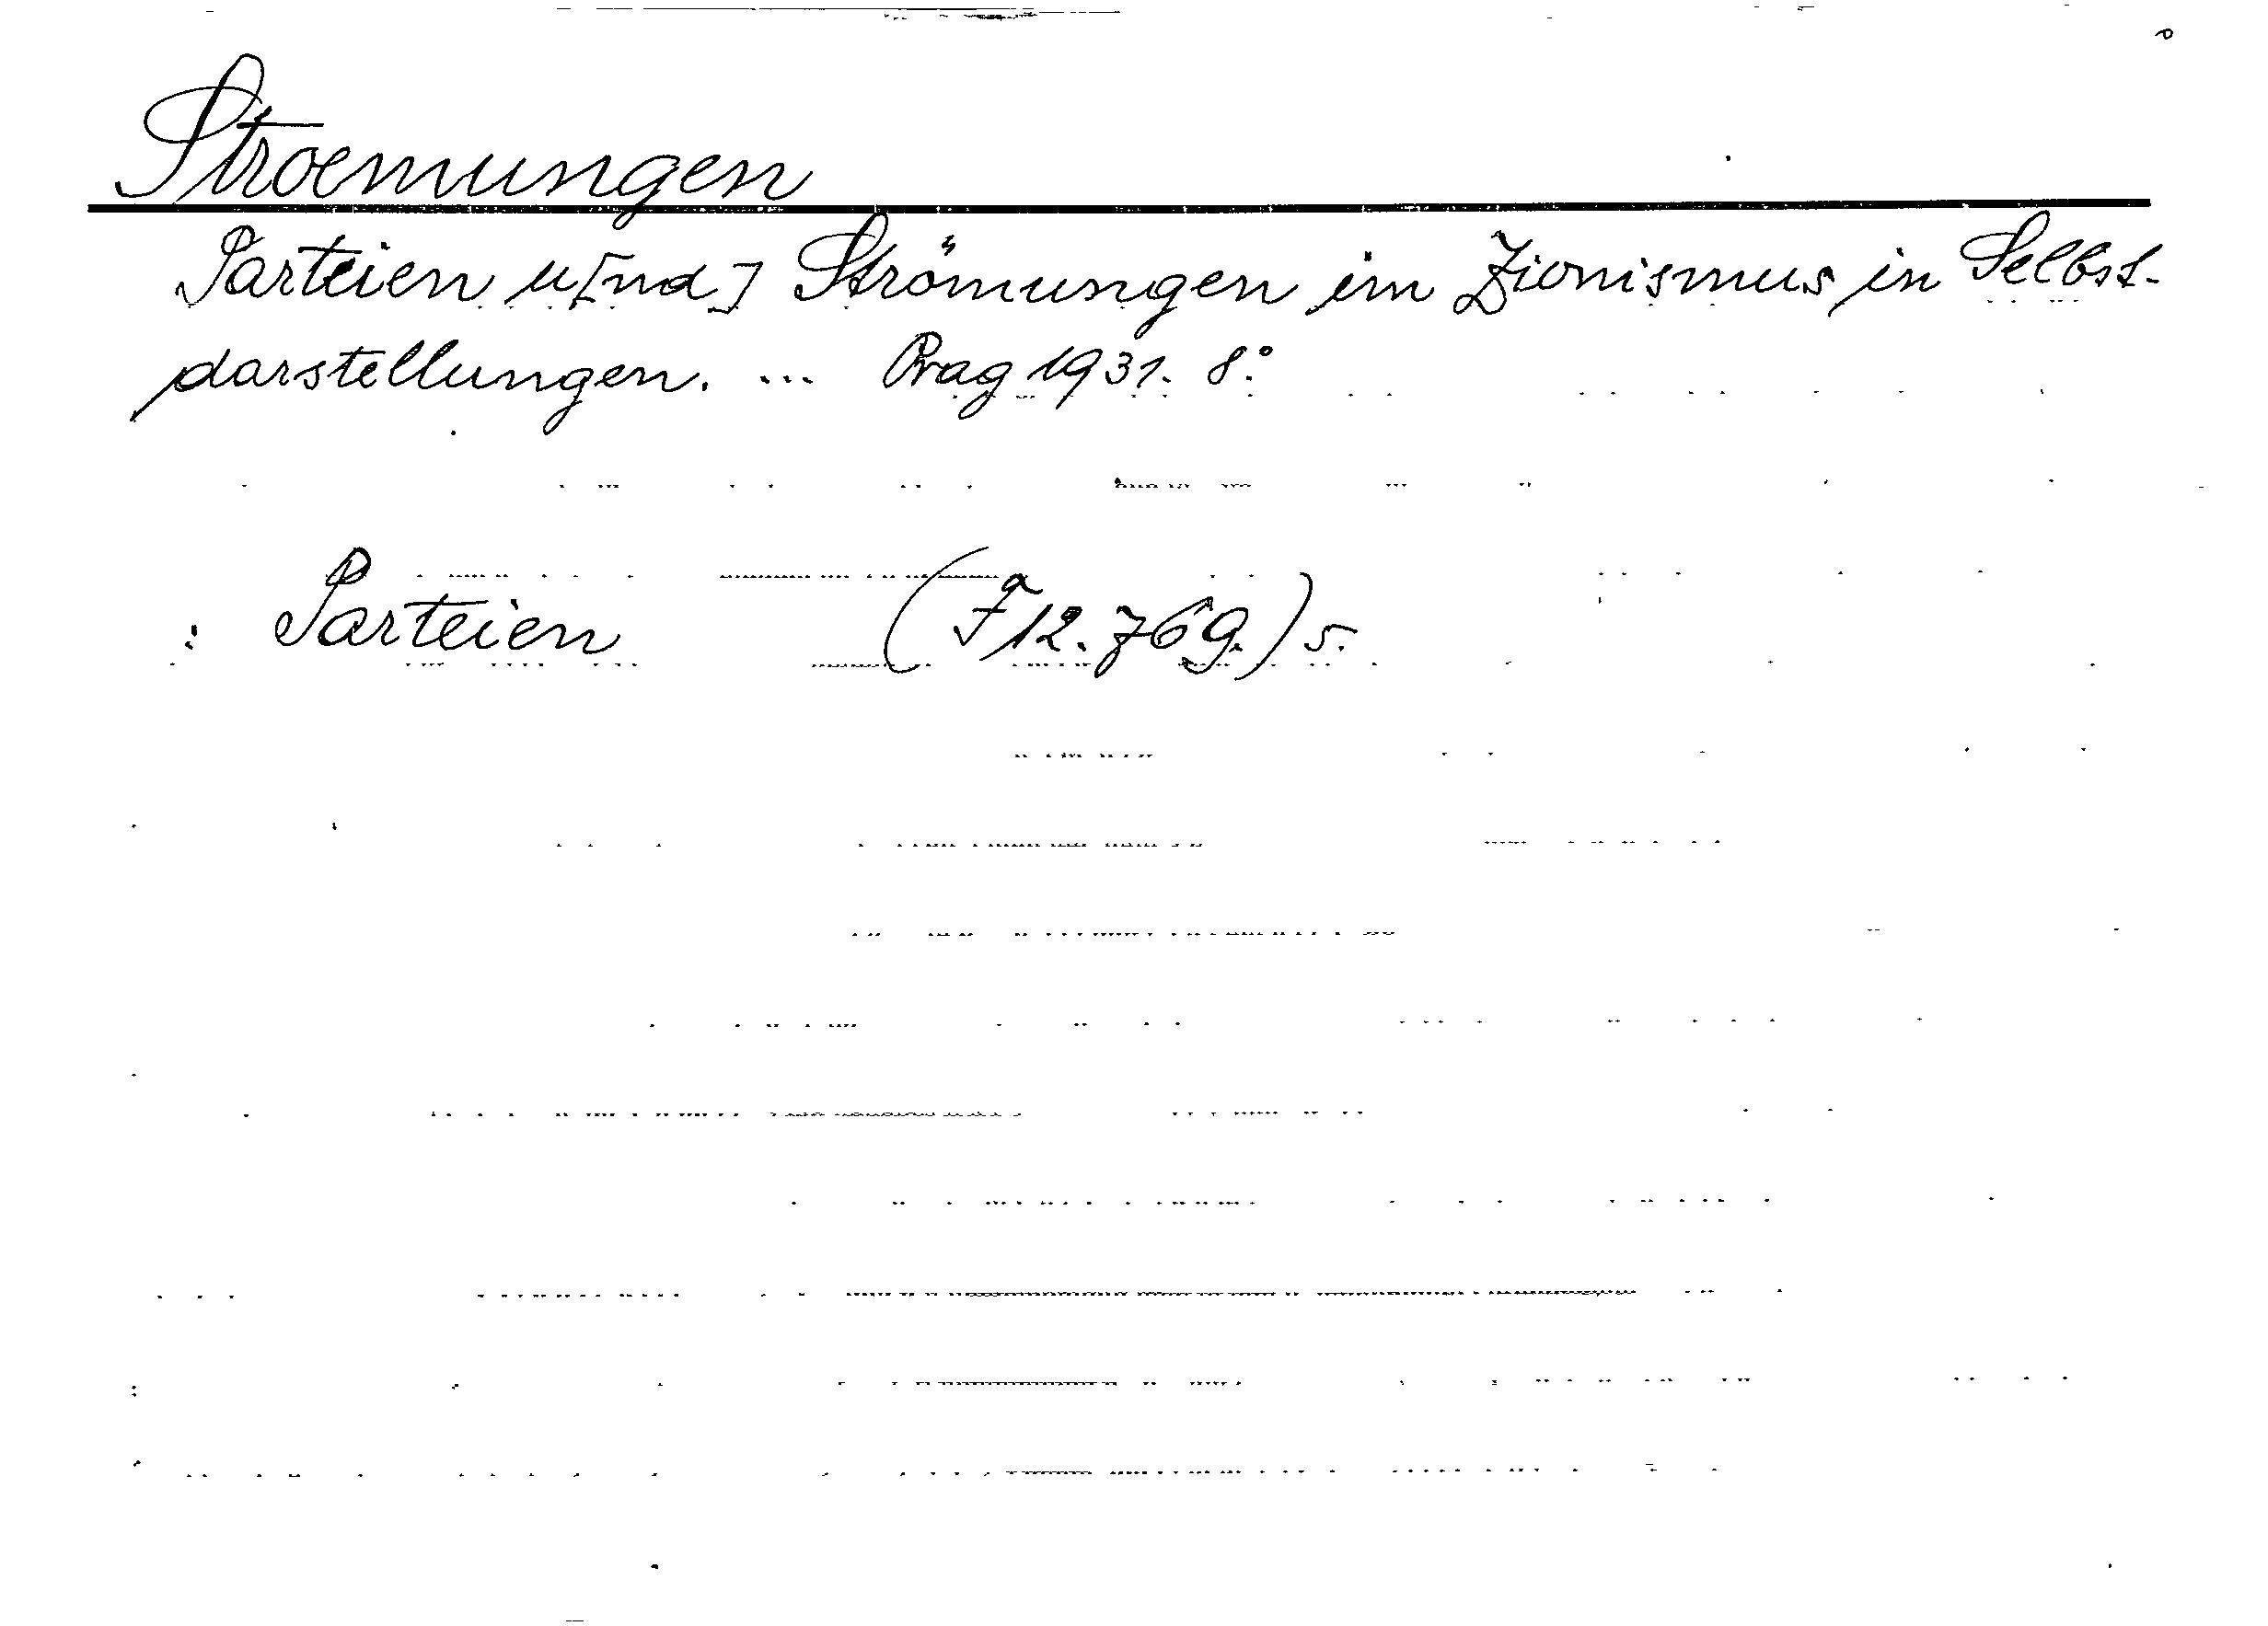 Stroemungen
Parteien u[nd] Strömungen im Zionismus in Selbst-
darstellungen. ... Prag 1931. 8°.
: Parteien (F 12.769.) s.